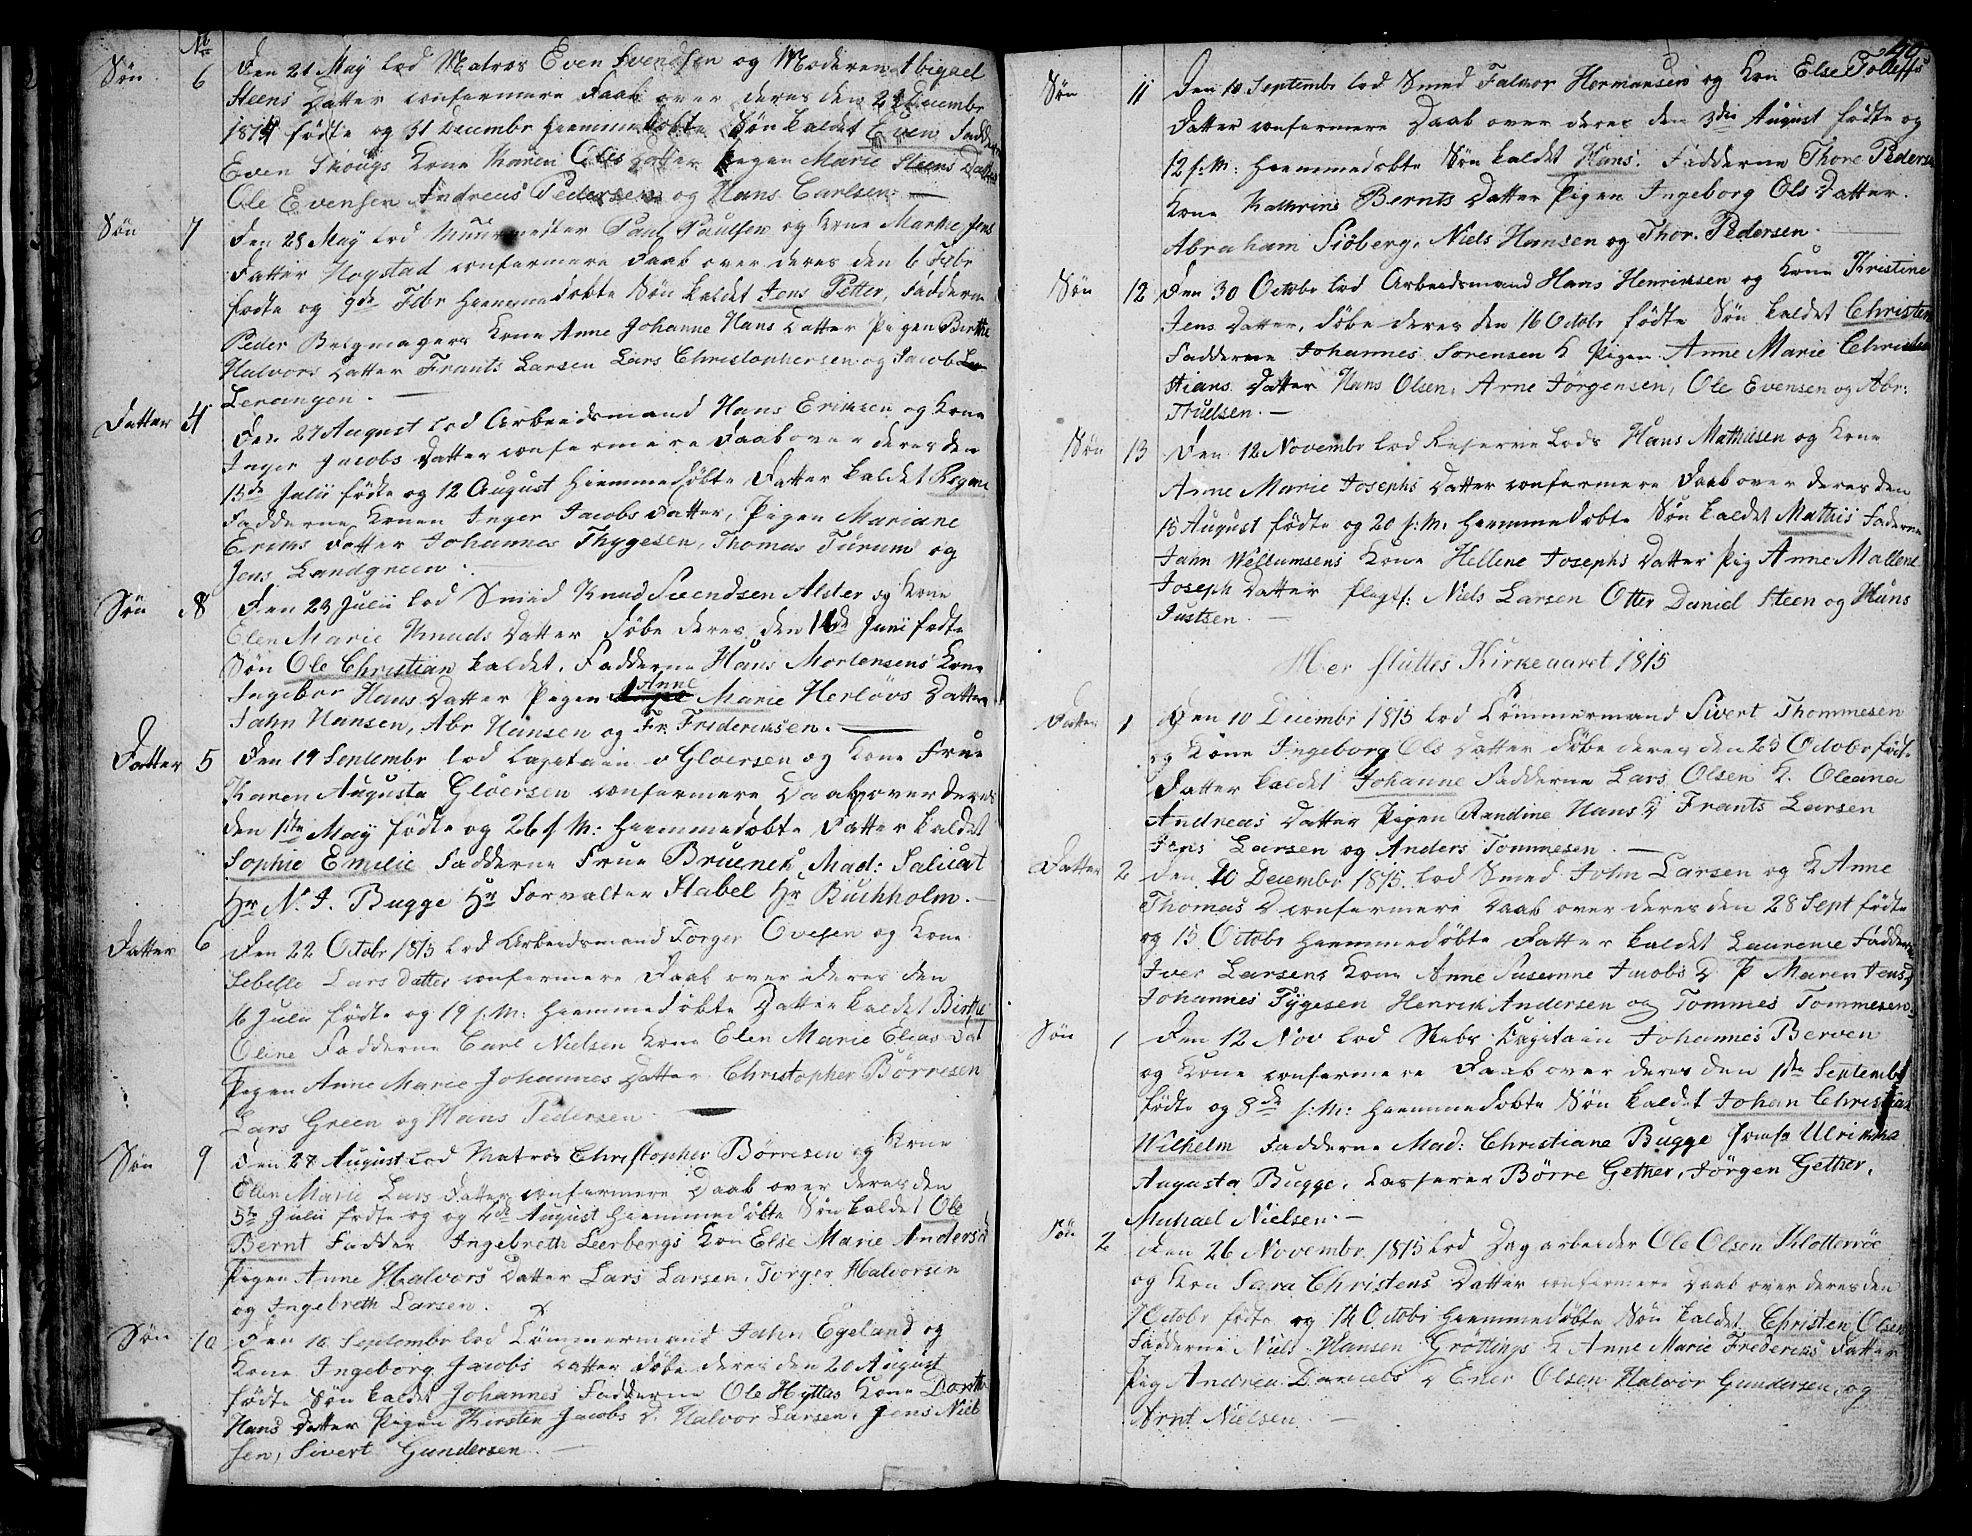 No
Søn 6 Den 21 May lod Matros Even Svendsen og Moderen Abigael
Steens Datter confermere Daab over deres den 2 Decembr
1814 fødte og 31 Decembr hiemmedøbte Søn kaldet Even Faddere
Even Skougs Kone Karen Ols Datter Pigen Marie Steens Datter
Ole Evensen Andreas Pedersen og Hans Carlsen. —
Søn 7 Den 28 May lod Muurmester Paul Paulsen og Kone Marthe Jens
Datter Hogstad confermere Daab over deres den 6 Febr
fødte og 9de Febr hiemmedøbte Søn kaldet Jens Petter, Fadderne
Peder Bergmagers Kone Anne Johanne Hans Datter Pigen Birthe
Halvors Datter Frants Larsen Lars Christophersen og Jacob
Lerangen. —
Datter 4 Den 27 August lod Arbeidsmand Hans Eriksen og Kone
Inger Jacobs Datter confermere Daab over deres den
15de Julii fødte og 12 August hiemmedøbte Datter kaldet
Fadderne Konen Inger Jacobs Datter, Pigen Mariane
Eriks Datter Johannes Thygesen, Thomas Turum og
Jens Landgreen.
Søn 8 Den 23 Julii lod Smed Knud Svendsen Alster og Kone
Elen Marie Knuds Datter døbe deres den 11de Juni fødte
Søn Ole Christian kaldet. Fadderne Hans Mortensens Kone
Ingebor Hans Datter Pigen Anne Marie Herløvs Datter
Jahn Hansen, Abr Hansen og Fr. Frideriksen. —
Datter 5 Den 19 Septembr lod Capitain v Gloersen og Kone Frue
Karen Augusta Gløersen confermere Daab over deres
den 1ste May fødte og 26 s. M: hiemmedøbte Datter kaldet
Sophie Emilie Fadderne Frue Bruenek Mad: Salicat
Hr N. J. Bugge Hr Forvalter Stabel Hr Buchholm. —
Datter 6 Den 22 Octobr 1815 lod Arbeidsmand Torger Ovesen og Kone
Sebelle Lars Datter confermere Daab over deres den
16 Julii fødte og 19 s. M: hiemmedøbte Datter kaldet Birthe
Oline Fadderne Carl Nielsen Kone Elen Marie Elias Dat
Pigen Anne Marie Johannes Datter Christopher Børresen
Lars Green og Hans Pedersen —
Søn 9 Den 27 August lod Matros Christopher Børresen og Kone
Elen Marie Lars Datter confermere Daab over deres den
5te Julii fødte og og 4de August hiemmedøbte Søn kaldet Ole
Bernt Fadder Ingebreth Leerbergs Kon Else Marie Anders D
Pigen Anne Halvors Datter Lars Larsen, Torger Halvorsen
og Ingebreth Larsen.
Søn 10 Den 10 Septembr lod Tømmermand Jahn Egeland og
Kone Ingeborg Jacobs Datter døbe deres den 20 August
fødte Søn kaldet Johannes Fadderne Ole Hyttes Kone Dorthe
Hans Datter Pigen Kirsten Jacobs D. Halvor Larsen, Jens Niel
sen, Sivert Gundersen. —
49
Søn 11 Den 10 Septembr lod Smed Halvor Hermansen og Kon Else Tollefs
Datter confermere Daab over deres den 3die August fødte og
12 s: M: hiemmedøbte Søn kaldet Hans. Fadderne Thore Peders
Kone Kathrine Bernts Datter Pigen Ingeborg Ols Datter.
Abraham Siøberg, Niels Hansen og Thor. Pedersen. —
Søn 12 Den 30 Octobr lod Arbeidsmand Hans Henriksen og Kone Kristine
Jens Datter, døbe deres den 16 Octobr fødte Søn kaldet Christen
Fadderne Johannes Sorensen K Pigen Anne Marie Chris
tians Datter Hans Olsen, Arne Jörgensen, Ole Evensen og Abr:
Truelsen. —
Søn 13 Den 12 Novembr lod Reserve Lods Hans Mathisen og Kone
Anne Marie Josephs Datter confermere Daab over deres den
15 August fødte og 20 s: M: hiemmedøbte Søn kaldet Mathis Fadderne
Jahn Wellumsens Kone Hellene Josephs Datter Pig Anne Mallene
Joseph Datter Niels Larsen Otter Daniel Steen og Hans
Justsen. —
Her sluttes Kirkeaaret 1815
Datter 1 Den 10 Decembr 1815 lod Tømmermand Sivert Thommesen
og Kone Ingeborg Ols Datter døbe deres den 25 Octobr fødte
Datter kaldet Johanne Fadderne Lars Olsen K. Oleana
Andreas Datter Pigen Randine Hans D Frants Larsen
Jens Larsen og Anders Tommesen. —
Datter 2 Den 10 Decembr 1815 lod Smed John Larsen og K Anne
Thomas D confermere Daab over deres den 28 Sept fødte
og 15 Octobr hiemmedøbte Datter kaldet Laurence Fadderne
Iver Larsens Kone Anne Susanne Jacobs D P Maren Jens D
Johannes Tygesen Henrik Andersen og Tommes Tommesen.
Søn 1 Den 12 Nov lod Stabs Capitain Johannes Berven
og Kone confermere Daab over deres den 1ste Septembr
fødte og 8de s: M: hiemmedøbte Søn kaldet Johan Christian
Wilhelm Fadderne Mad: Christiane Bugge Jomfr Ulrikka
Augusta Bugge, Casserer Börre Gether, Jörgen Gether,
Michael Nielsen. —
Søn 2 Den 26 Novembr 1815 lod Dagarbeider Ole Olsen Klotterøe
og Kon Sara Christens Datter confermere Daab over deres den
7 Octobr fødte og 14 Octobr hiemmedøbte Søn kaldet Christen Olsen
Fadderne Niels Hansen Gröttings K Anne Marie Frederiks Datter
Pig Andrea Daniels D Ener Olsen Halvor Gundersen, og
Arnt Nielsen. —